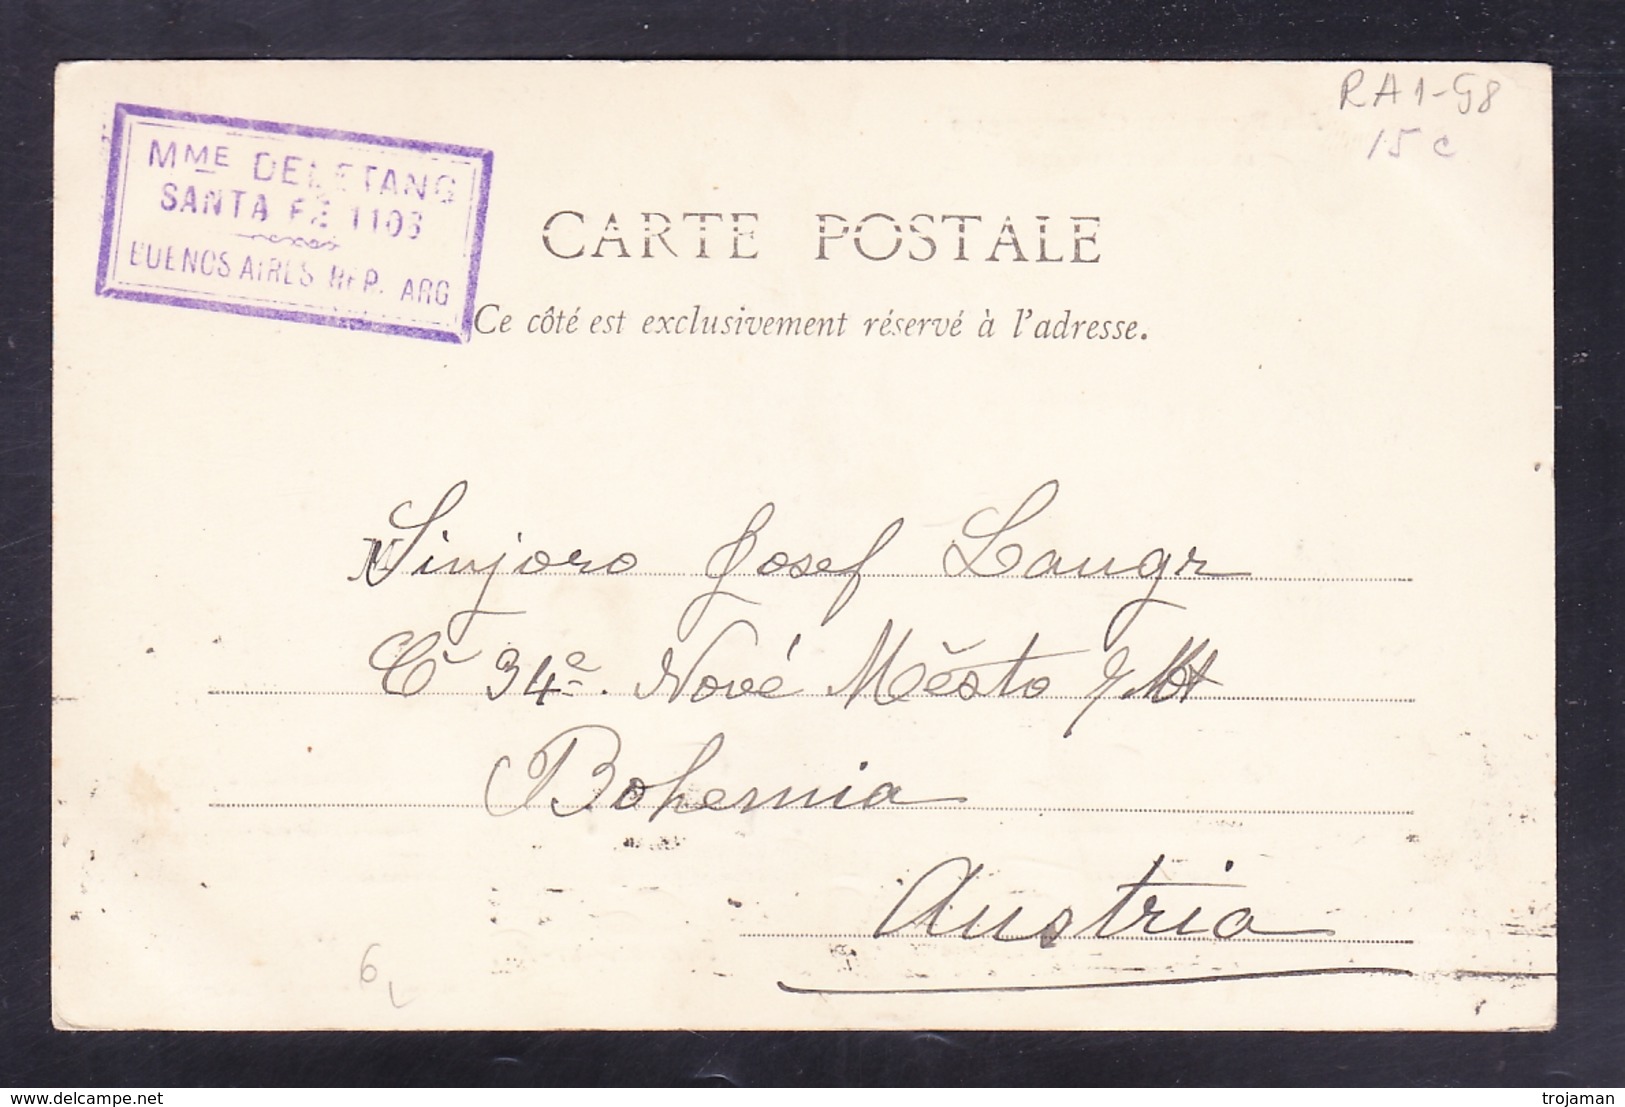 RA1-98
15 c
MME DELETANG
SANTA FÉ 1103
BUENOS AIRES REP. ARG
CARTE POSTALE
Ce côté est exclusivement réservé à l'adresse.
Sinjoro Josef Laugr
34e. Nové Město
Bohemia
Austria
6
trojaman